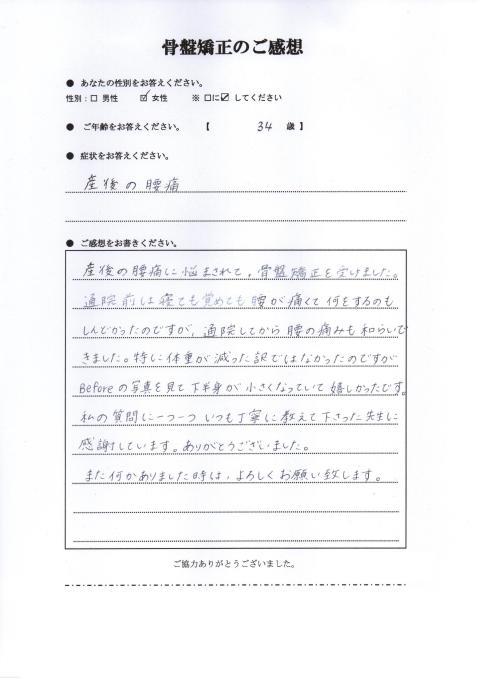 骨盤矯正のご感想
● あなたの性別をお答えください。
性別：□ 男性 ☑ 女性 ※ □に☑してください
● ご年齢をお答えください。 【 34 歳 】
● 症状をお答えください。
産後の腰痛
● ご感想をお書きください。
産後の腰痛に悩まされて，骨盤矯正を受けました。
通院前は寝ても覚めても腰が痛くて何をするのも
しんどかったのですが，通院してから腰の痛みも和らいで
きました。特に体重が減った訳ではなかったのですが
Beforeの写真を見て下半身が小さくなっていて嬉しかったです。
私の質問に一つ一ついつも丁寧に教えて下さった先生に
感謝しています。ありがとうございました。
また何かありました時は，よろしくお願い致します。
ご協力ありがとうございました。